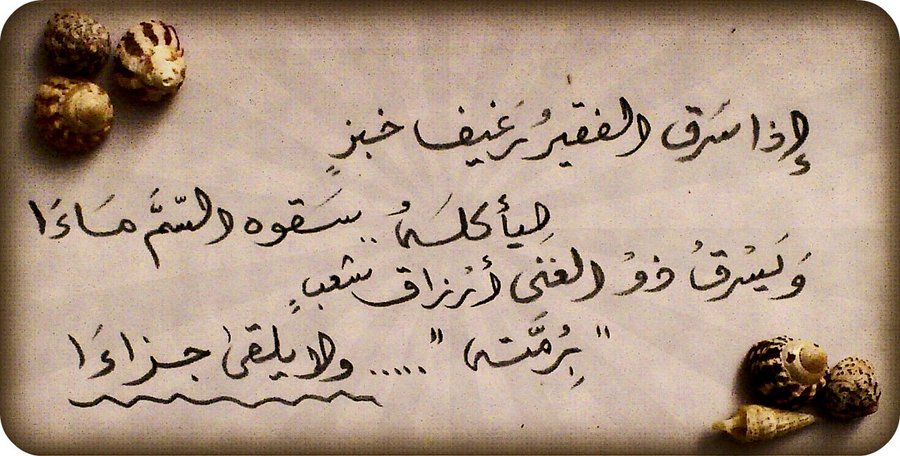 إذا سَرق الفقيرُ رَغيف خبزٍ
ليأكلَهُ .. سَقوه السّمَّ مَاءَا
وَيَسْرقُ ذوُ الغنى أرْزاق شعبٍ
"بِرُمَّته" ..... ولا يلقى جزاءَا